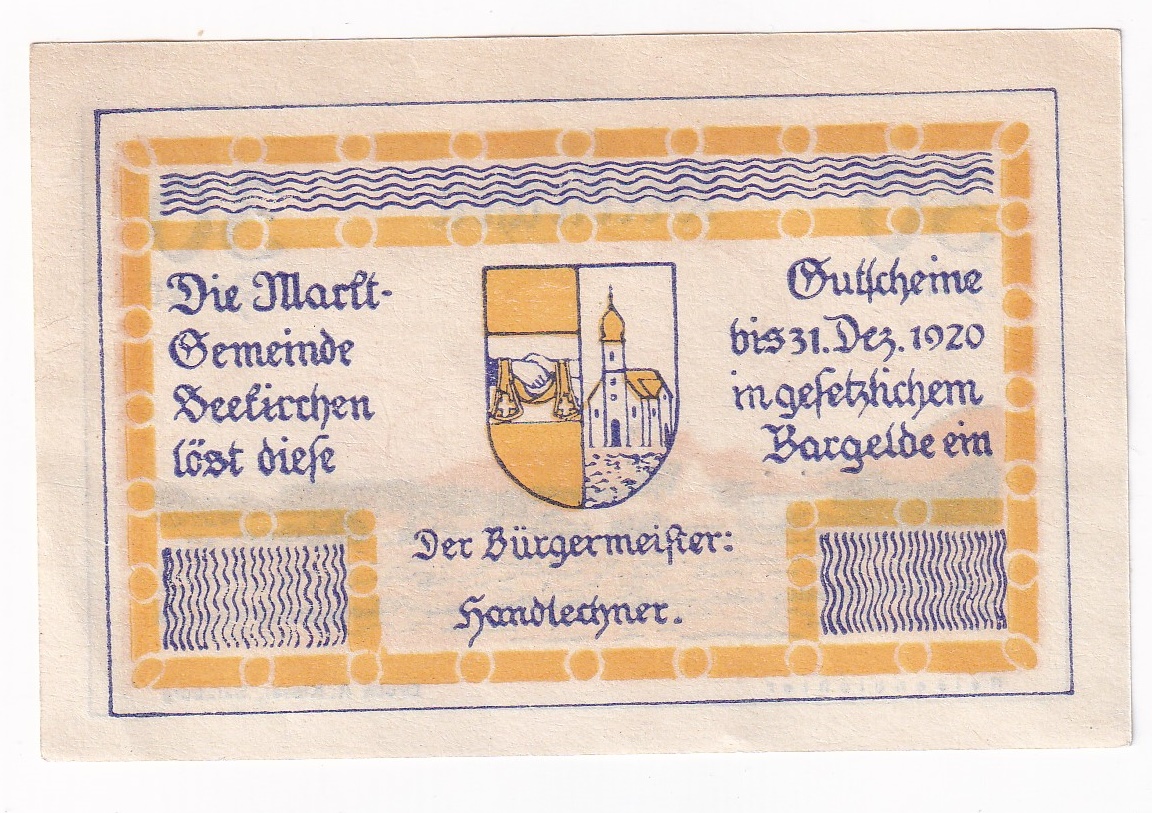 Die Markt-
Gemeinde
Seekirchen
löst diese
Gutscheine
bis 31. Dez. 1920
in gesetzlichem
Bargelde ein
Der Bürgermeister:
Handlechner.